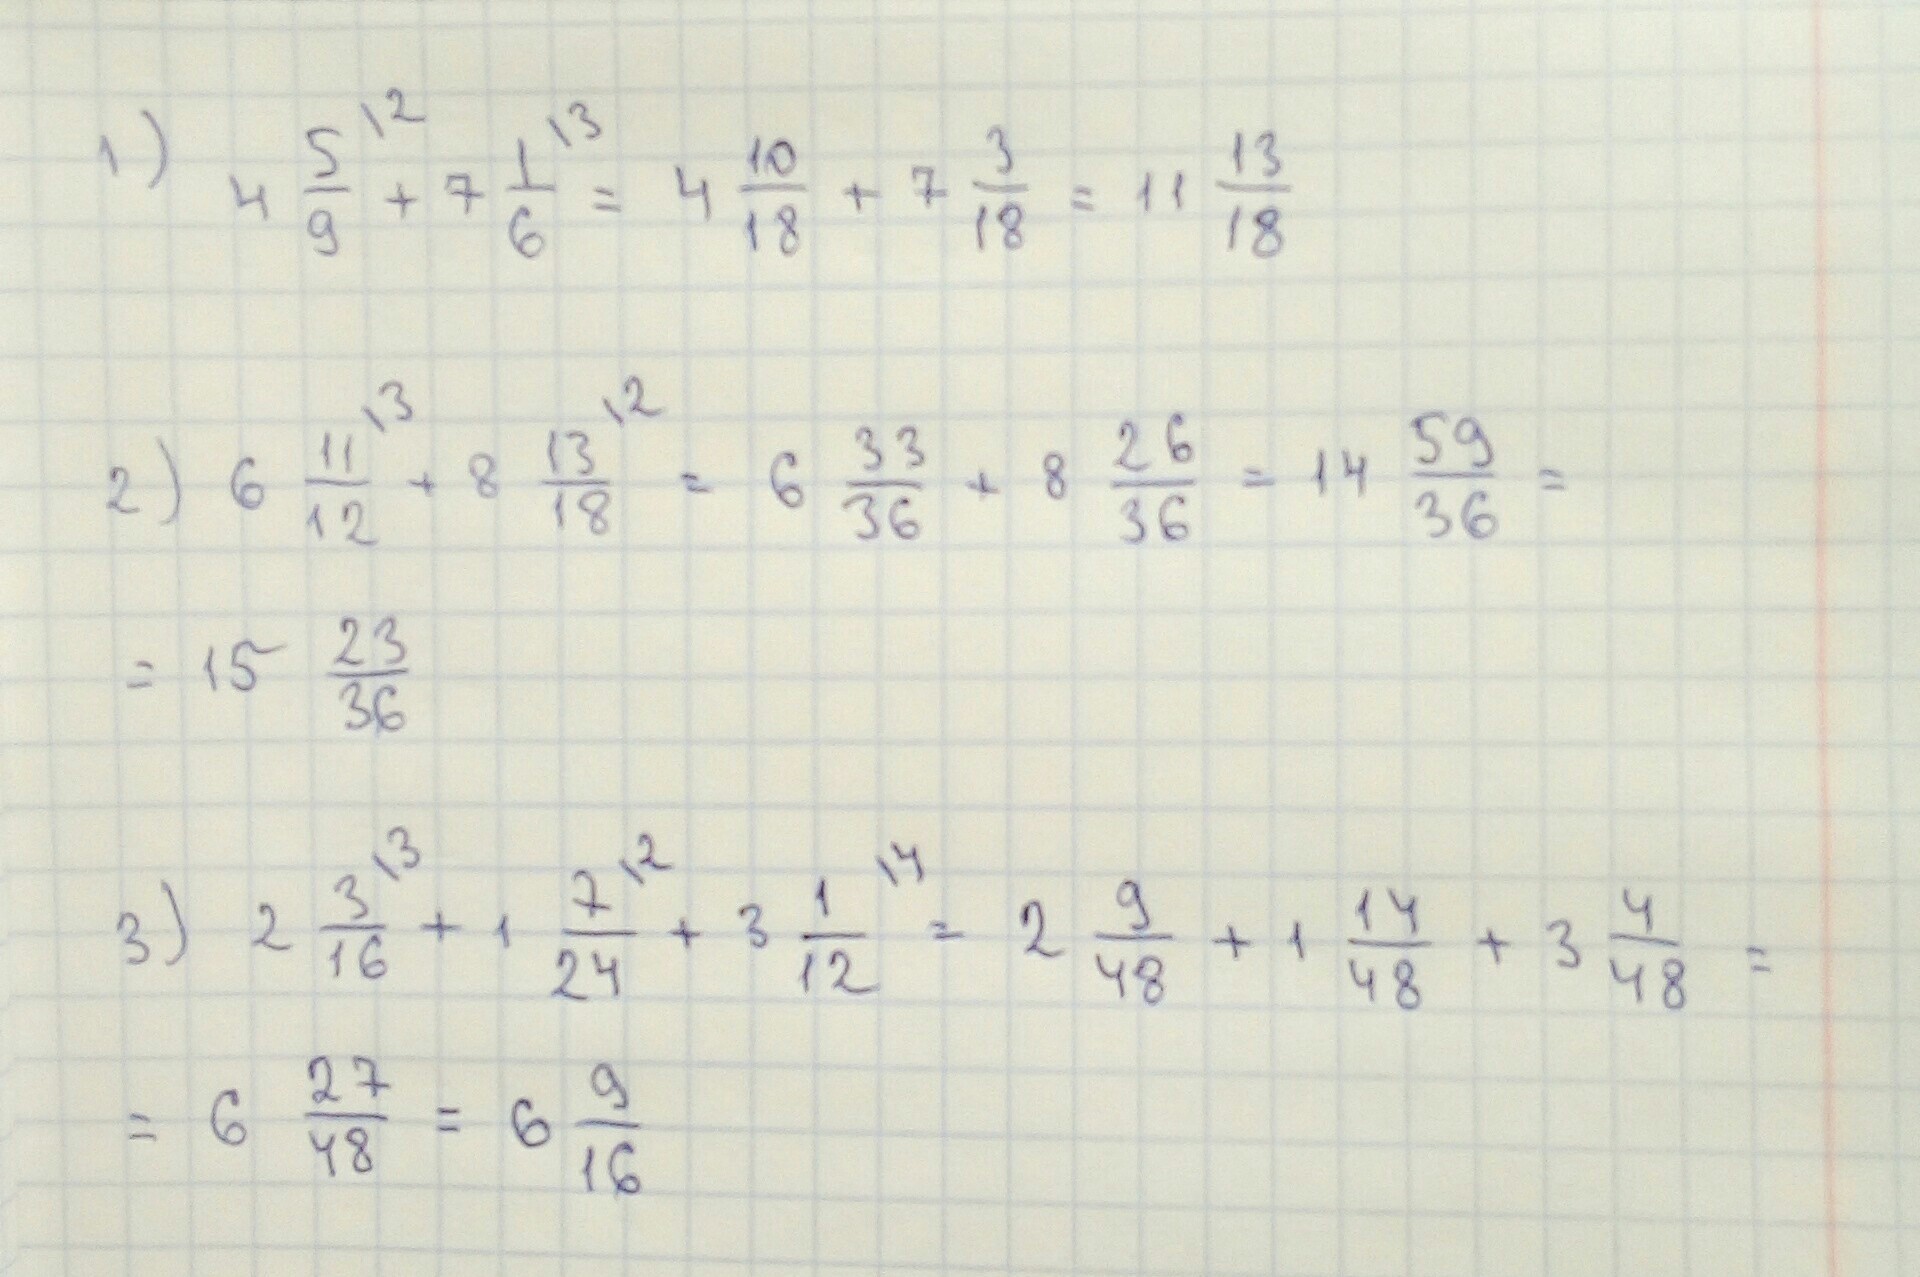 1) 4 5/9 \2 + 7 1/6 \3 = 4 10/18 + 7 3/18 = 11 13/18
2) 6 11/12 \3 + 8 13/18 \2 = 6 33/36 + 8 26/36 = 14 59/36 =
= 15 23/36
3) 2 3/16 \3 + 1 7/24 \2 + 3 1/12 \4 = 2 9/48 + 1 14/48 + 3 4/48 =
= 6 27/48 = 6 9/16